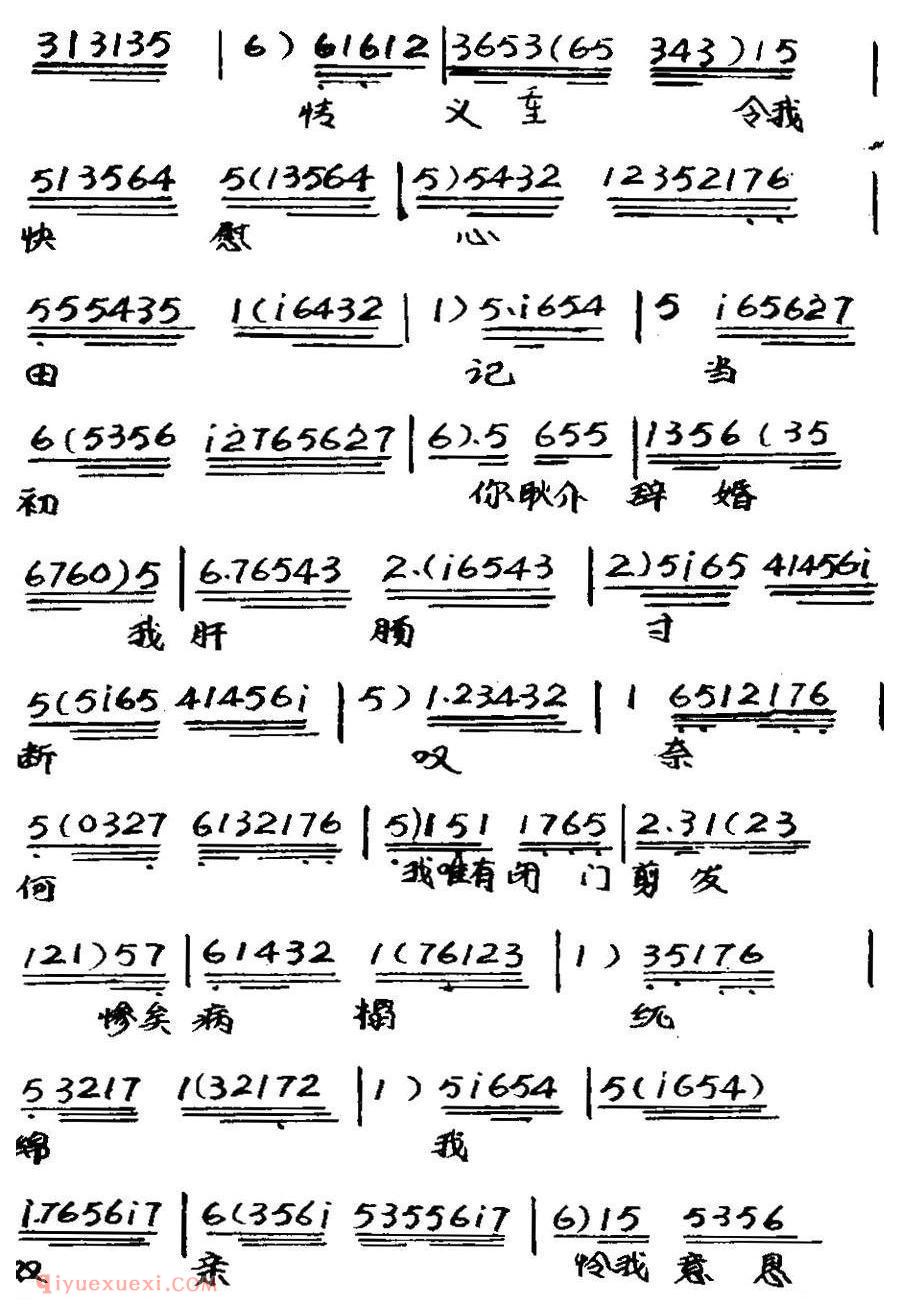 313135 | 6) 61612 | 3653(65 343)15 |
情 义 重 令我
513564 5(13564 | 5)5432 12352176 |
快 慰 心
555435 1(i6432 | 1) 5.i654 | 5 i65627
田 记 当
6(5356 i2765627 | 6).5 655 | 1356(35
初 你耿介 辞 婚
6760)5 | 6.76543 2.(i6543 | 2)5i65 41456i
我 肝 肠 寸
5(5i65 41456i | 5) 1.23432 | 1 6512176 |
断 叹 奈
5(0327 6132176 | 5)151 1765 | 2.31(23
何 我唯有闭 门 剪 发
121)57 | 61432 1(76123 | 1) 35176 |
惨矣 病 榻 缠
53217 1(32172 | 1) 5i654 | 5(i654)
绵 我
i.7656i7 | 6(356i 53556i7 | 6)15 5356
双 亲 怜我 意 恩
qiyuexuexi.com